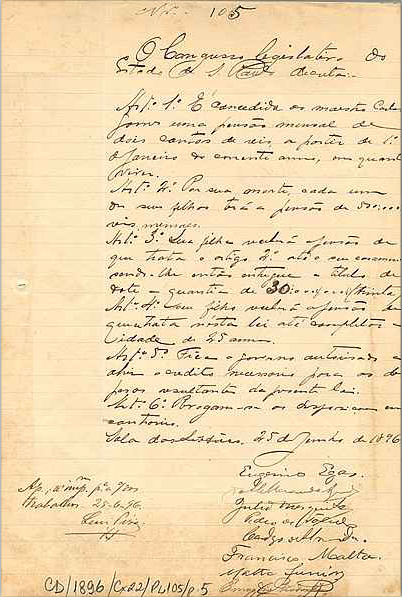 N. 105
O Congresso Legislativo do
Estado de S. Paulo decreta:
Art.º 1.º É concedida ao maestro Carlos
Gomes uma pensão mensal de
dois contos de reis, a partir de 1.º
de Janeiro do corrente anno, em quanto
viver.
Art.º 2.º Por sua morte, cada um
de seus filhos terá a pensão de 500.000
reis mensaes.
Art.º 3.º Sua filha receberá a pensão de
que trata o artigo 2.º até o seu casamento
sendo-lhe então entregue a titulo de
dote a quantia de 30:000.000 (trinta
Art.º 4.º Seu filho receberá a pensão de
que trata nesta lei até completar a
idade de 25 annos.
Art.º 5.º Fica o governo autorisado a
abrir o credito necessario para as des
pezas resultantes da presente lei.
Art.º 6.º Revogam-se as disposições em
contrario.
Sala das Sessões, 25 de Junho de 1896
Eugenio Egas.
Julio Mesquita
Francisco Malta.
Malta Junior
trabalhos. 25-6-96.
CD/1896/Cx22/PL105/p.5